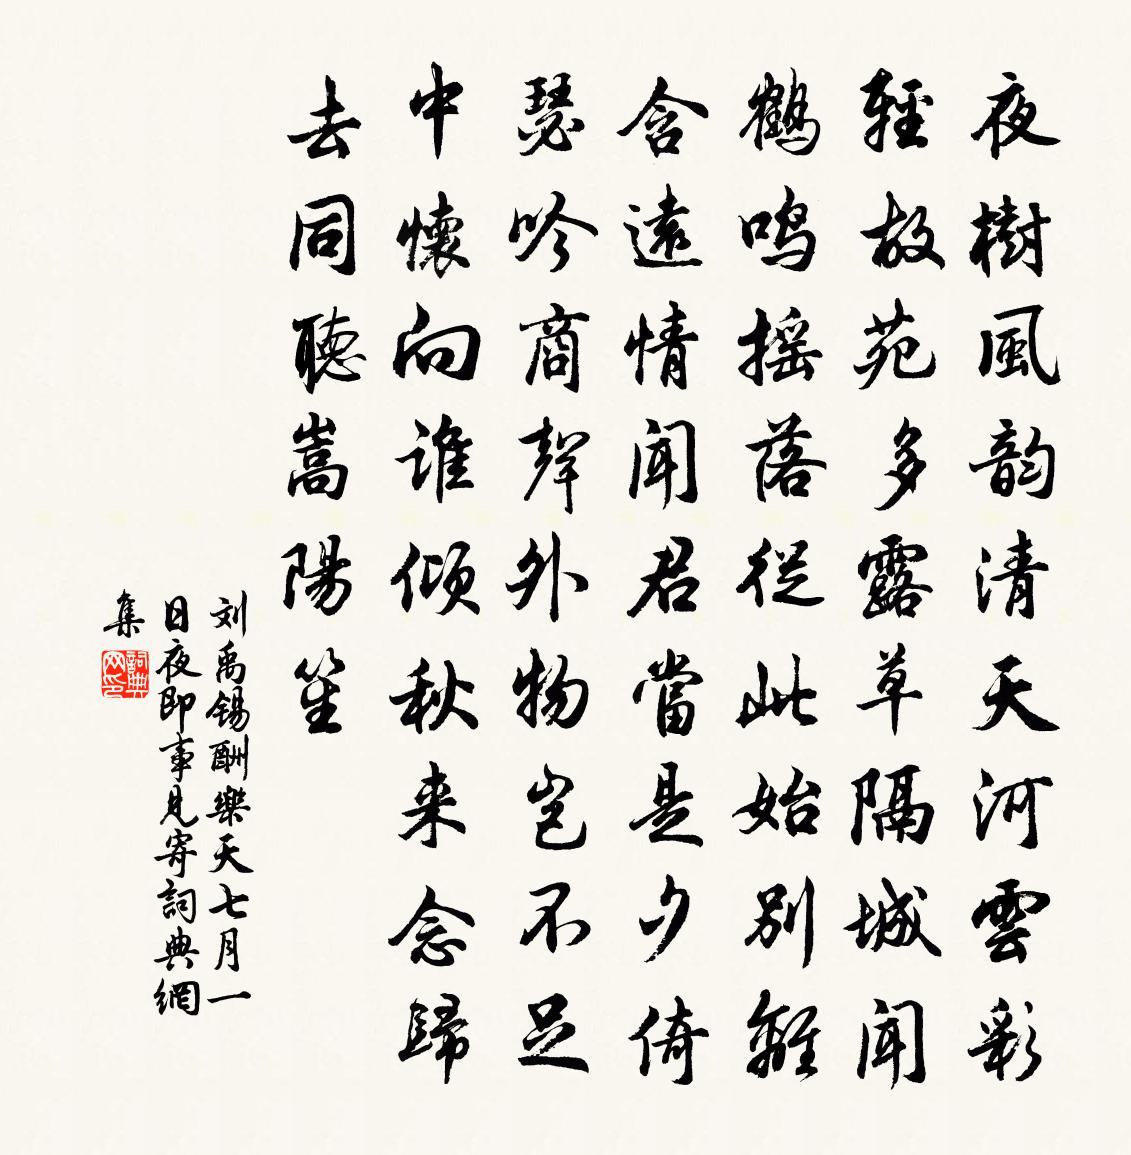 夜樹風韵清天河雲彩
輕故苑多露草隔城聞
鶴鳴摇落從此始别離
含遠情聞君當是夕倚
瑟吟商聲外物豈不足
中懷向誰倾秋来念歸
去同聽嵩陽笙
刘禹锡酬樂天七月一
日夜即事見寄詞典網
集
詞典网印